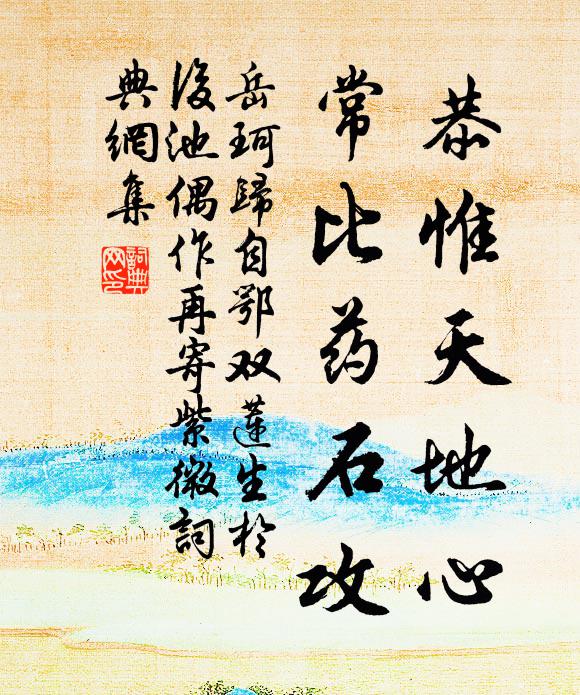 恭惟天地心
常比药石攻
岳珂歸自鄂双蓮生於
後池偶作再寄紫微詞
典網集
詞典網印